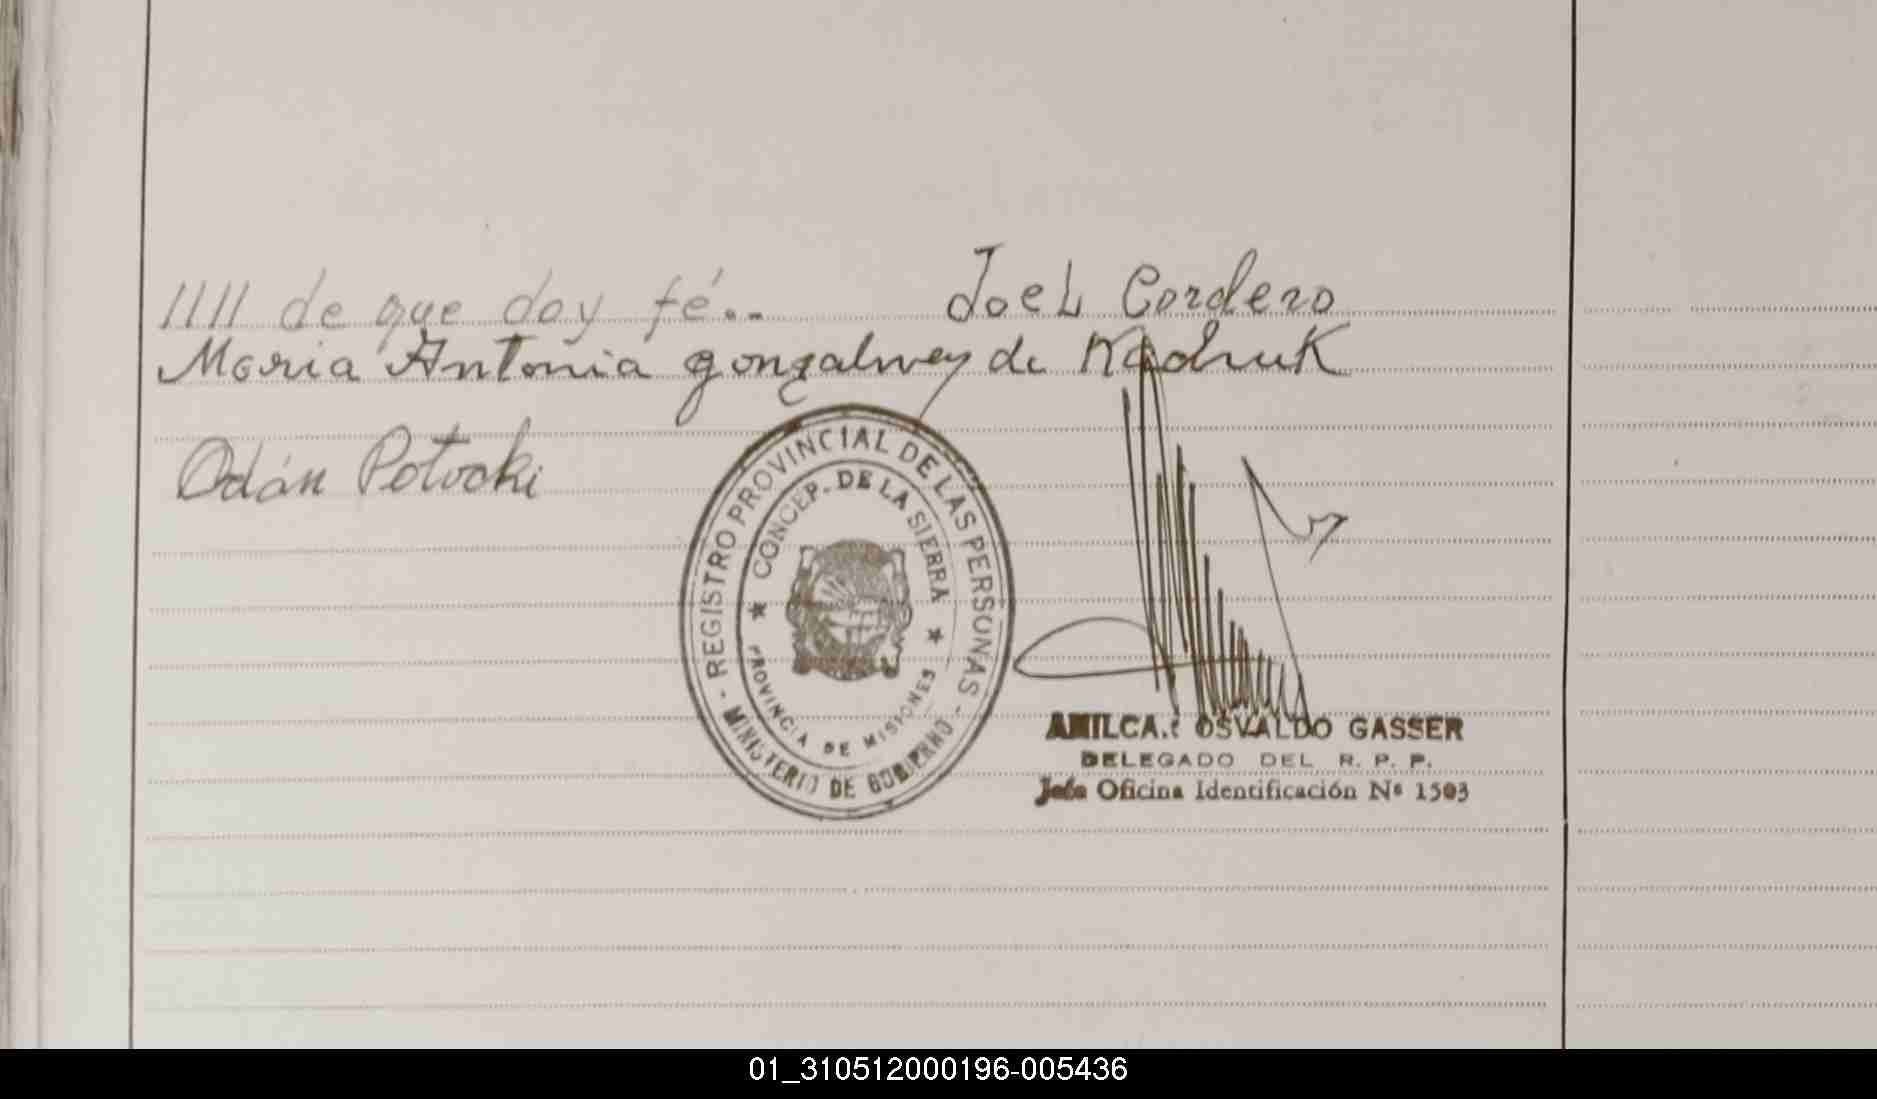 //// de que doy fé.. Joel Cordero
Maria Antonia gonzalvez de
Odán Potocki
- REGISTRO PROVINCIAL DE LAS PERSONAS -
MINISTERIO DE GOBIERNO
★ CONCEP. DE LA SIERRA ★
PROVINCIA DE MISIONES
AMILCA.: OSVALDO GASSER
DELEGADO DEL R. P. P.
Jefe Oficina Identificación Nº 1503
01_310512000196-005436